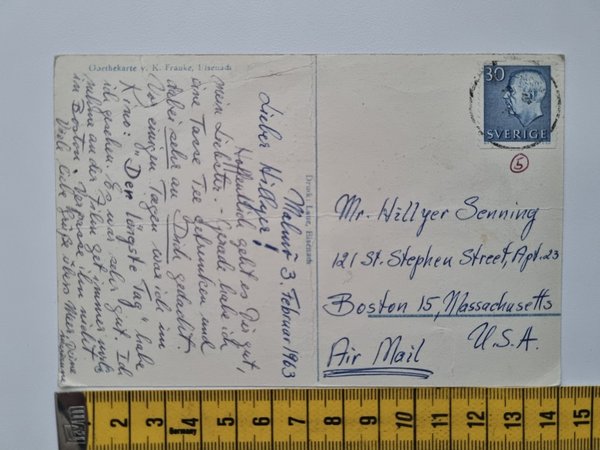 Goethekarte v. K. Franke, Eisenach
Malmö 3. Februar 1963
Lieber Hillyer!
Hoffentlich geht es Dir gut,
mein Liebster. - Gerade habe ich
eine Tasse Tee getrunken und
dabei sehr an Dich gedacht.
Vor einigen Tagen war ich im
Kino: "Der längste Tag" habe
ich gesehen. Es war sehr gut. Ich
nehme an der Film immer
in Boston. Vergesse ihn nicht
Viele liebe Grüße Deine
Eisenach
30
SVERIGE
5
Mr. Hillyer Senning
121 St. Stephen Street, Apt. 23
Boston 15, Massachusetts
U.S.A.
Air Mail
2 3 4 5 6 7 8 9 10 11 12 13 14 15
Germany